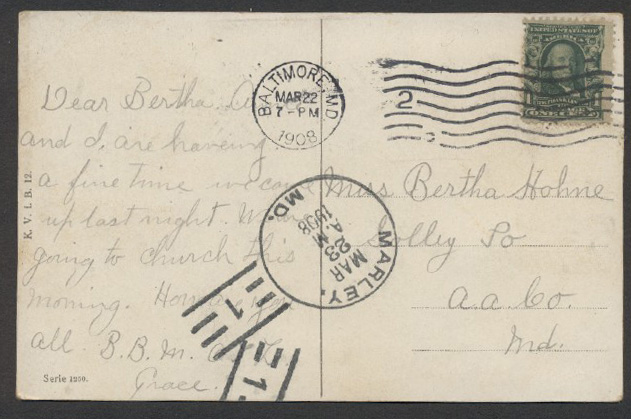 UNITED STATES OF
AMERICA
BALTIMORE, MD.
MAR 22
7-PM
1908
2
ONE CENT
Dear Bertha,
and I are haveing
a fine time we came
up last night. We are
going to church this
morning. How are you
all. B.B.M.
Grace.
Miss Bertha Hohne
Solley Po
a.a. Co.
Md.
MARLEY, MD.
MAR
23
A.M
1908
1
K. V. i. B. 12.
Serie 1200.